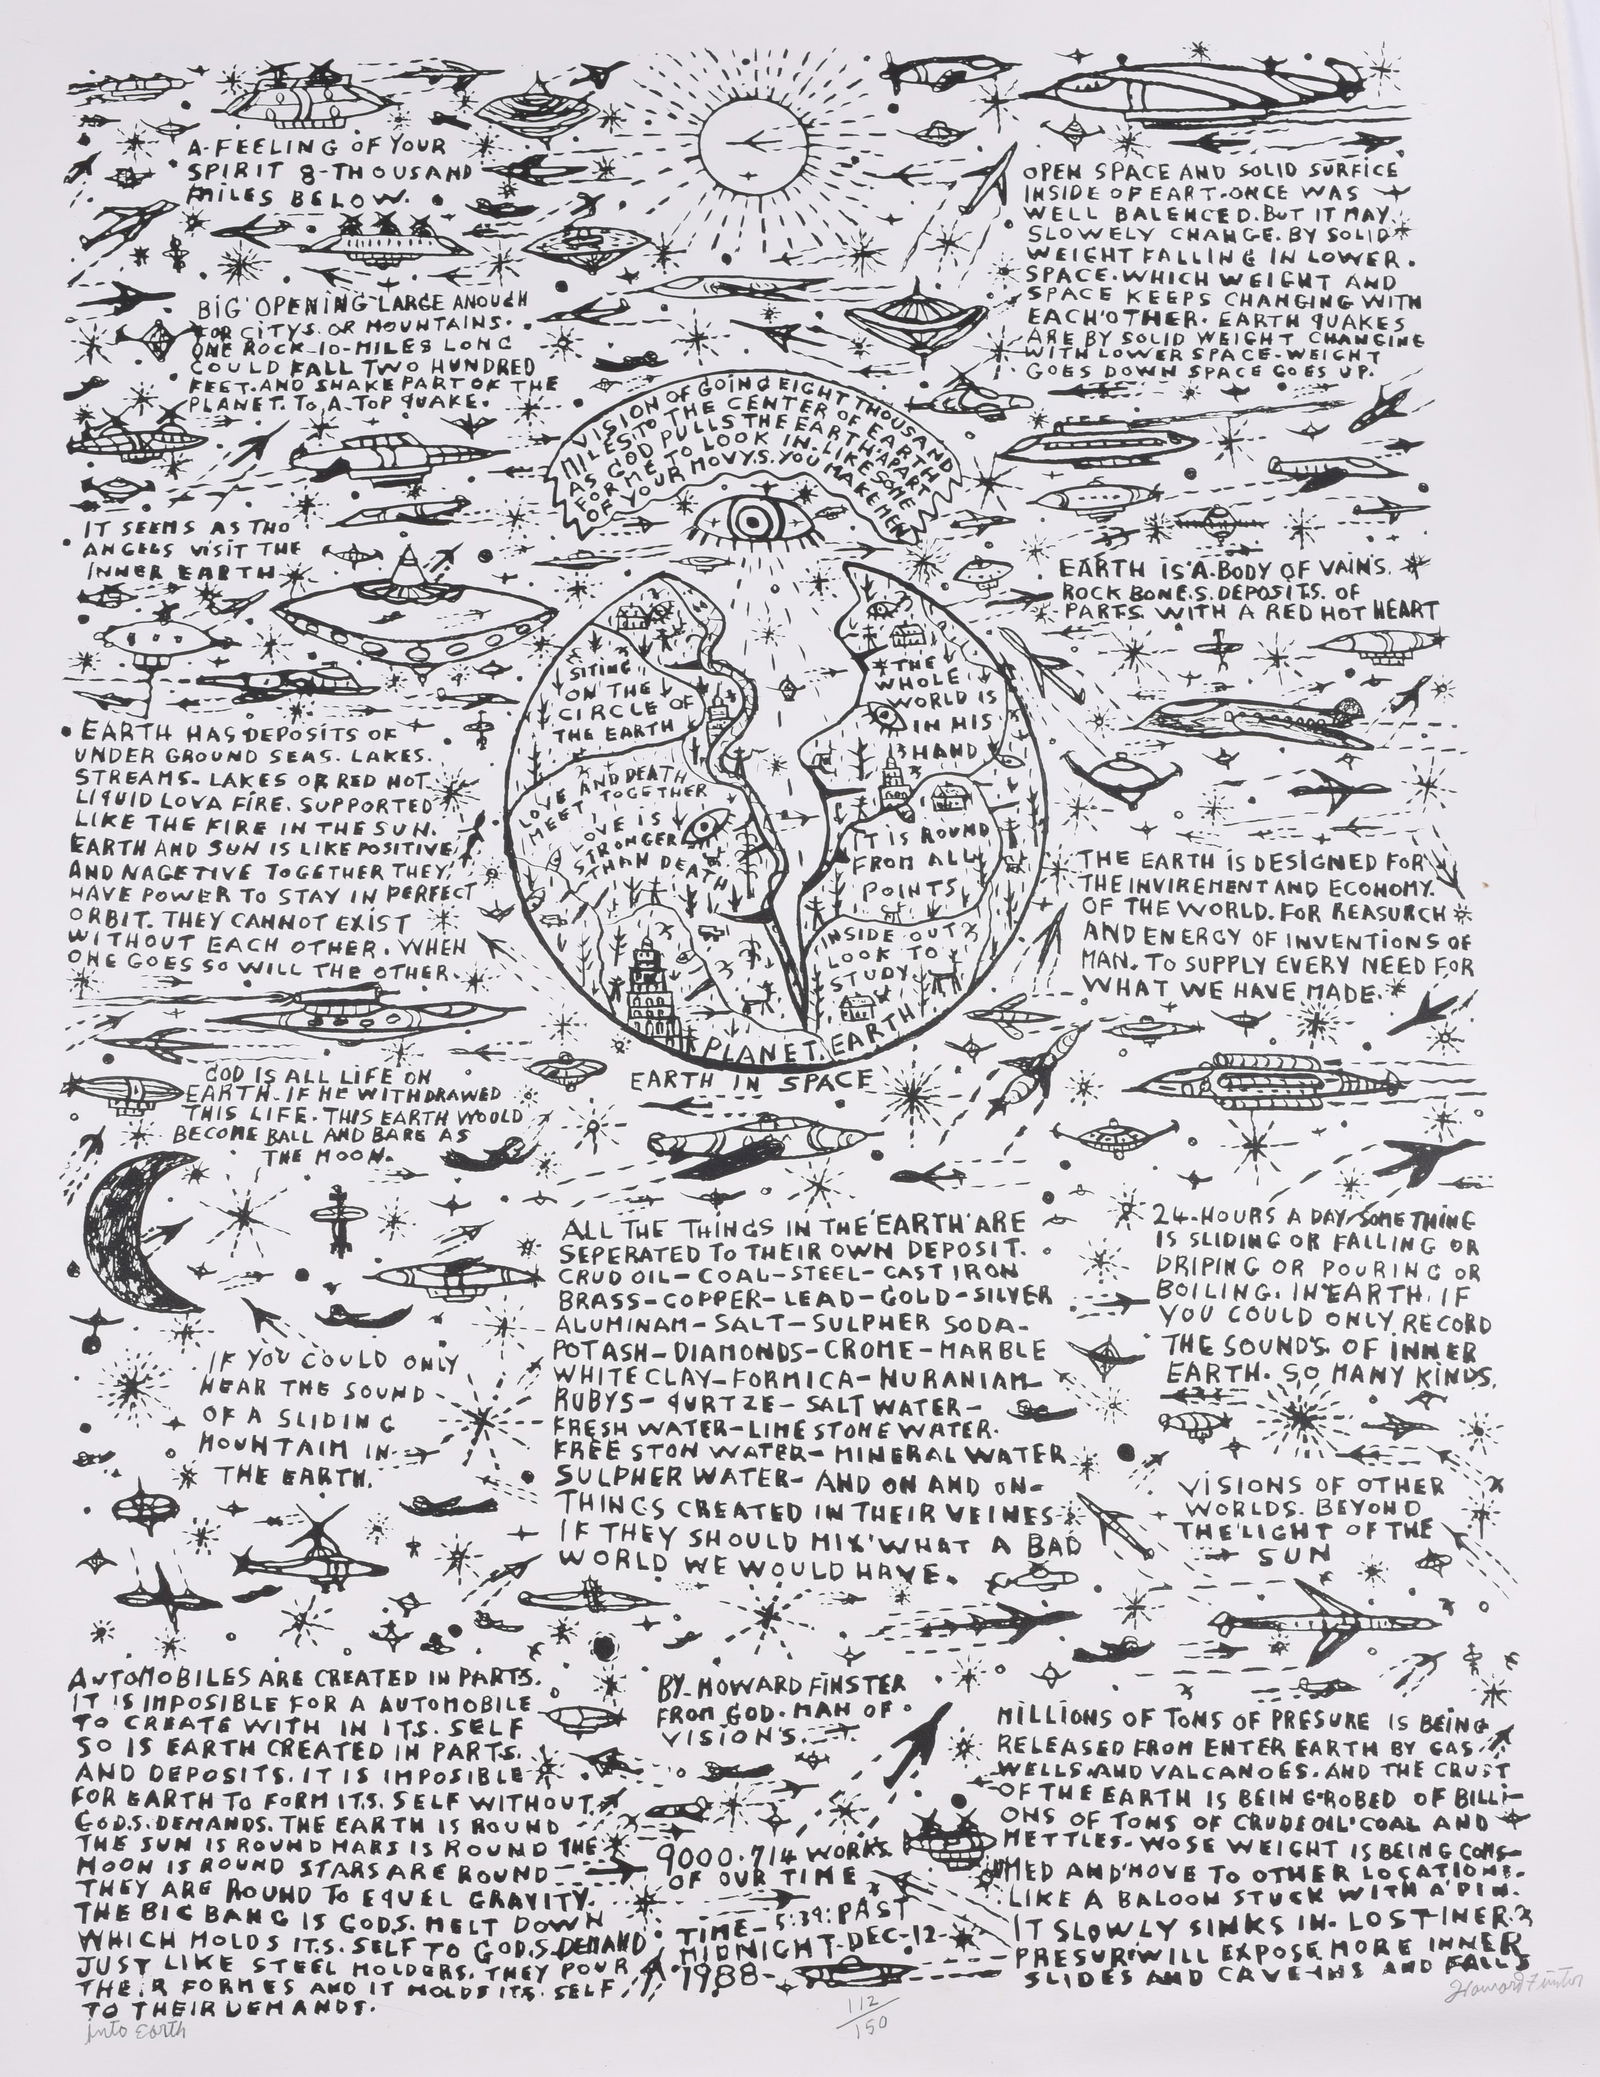 A-FEELING OF YOUR
SPIRIT 8-THOUSAND
MILES BELOW.
BIG OPENING LARGE ANOUGH
FOR CITYS. OR MOUNTAINS.
ONE ROCK 10-MILES LONG
COULD FALL TWO HUNDRED
FEET. AND SHAKE PART OF THE
PLANET. TO A TOP QUAKE.
OPEN SPACE AND SOLID SURFICE
INSIDE OF EART. ONCE WAS
WELL BALENCED. BUT IT MAY
SLOWELY CHANGE. BY SOLID
WEIGHT FALLING IN LOWER.
SPACE. WHICH WEIGHT AND
SPACE KEEPS CHANGING WITH
EACH OTHER. EARTH QUAKES
ARE BY SOLID WEIGHT CHANGING
WITH LOWER SPACE. WEIGHT
GOES DOWN SPACE GOES UP.
VISION OF GOING EIGHT THOUSAND
MILES TO THE CENTER OF EARTH
AS GOD PULLS THE EARTH APART
FOR ME TO LOOK IN. LIKE SOME
OF YOUR MOVYS. YOU MAKE MEN
IT SEEMS AS THO
ANGELS VISIT THE
INNER EARTH
EARTH IS A BODY OF VAINS.
ROCK BONES. DEPOSITS. OF
PARTS. WITH A RED HOT HEART
SITING
ON THE
CIRCLE OF
THE EARTH
THE
WHOLE
WORLD IS
IN HIS
HAND
LOVE AND DEATH
MEET TOGETHER
LOVE IS
STRONGER
THAN DEATH
IT IS ROUND
FROM ALL
POINTS
INSIDE OUT
LOOK TO
STUDY
PLANET. EARTH
EARTH IN SPACE
EARTH HAS DEPOSITS OF
UNDER GROUND SEAS. LAKES.
STREAMS. LAKES OF RED HOT
LIQUID LOVA FIRE. SUPPORTED
LIKE THE FIRE IN THE SUN.
EARTH AND SUN IS LIKE POSITIVE
AND NAGETIVE TOGETHER THEY
HAVE POWER TO STAY IN PERFECT
ORBIT. THEY CANNOT EXIST
WITHOUT EACH OTHER. WHEN
ONE GOES SO WILL THE OTHER.
THE EARTH IS DESIGNED FOR
THE INVIREMENT AND ECONOMY.
OF THE WORLD. FOR REASURCH
AND ENERGY OF INVENTIONS OF
MAN. TO SUPPLY EVERY NEED FOR
WHAT WE HAVE MADE.
GOD IS ALL LIFE ON
EARTH. IF HE WITHDRAWED
THIS LIFE. THIS EARTH WOULD
BECOME BALL AND BARE AS
THE MOON.
IF YOU COULD ONLY
HEAR THE SOUND
OF A SLIDING
MOUNTAIN IN
THE EARTH.
ALL THE THINGS IN THE EARTH ARE
SEPERATED TO THEIR OWN DEPOSIT.
CRUD OIL-COAL-STEEL-CAST IRON
BRASS-COPPER-LEAD-GOLD-SILVER
ALUMINAM-SALT-SULPHER SODA-
POTASH-DIAMONDS-CROME-MARBLE
WHITE CLAY-FORMICA-NURANIAM-
RUBYS-QURTZE-SALT WATER-
FRESH WATER-LIME STONE WATER.
FREE STON WATER-MINERAL WATER
SULPHER WATER- AND ON AND ON-
THINGS CREATED IN THEIR VEINES
IF THEY SHOULD MIX WHAT A BAD
WORLD WE WOULD HAVE.
24-HOURS A DAY SOMETHING
IS SLIDING OR FALLING OR
DRIPING OR POURING OR
BOILING. IN EARTH. IF
YOU COULD ONLY RECORD
THE SOUNDS. OF INNER
EARTH. SO MANY KINDS.
VISIONS OF OTHER
WORLDS. BEYOND
THE LIGHT OF THE
SUN
AUTOMOBILES ARE CREATED IN PARTS.
IT IS IMPOSIBLE FOR A AUTOMOBILE
TO CREATE WITH IN ITS. SELF
SO IS EARTH CREATED IN PARTS.
AND DEPOSITS. IT IS IMPOSIBLE
FOR EARTH TO FORM ITS. SELF WITHOUT
GODS. DEMANDS. THE EARTH IS ROUND
THE SUN IS ROUND MARS IS ROUND THE
MOON IS ROUND STARS ARE ROUND
THEY ARE ROUND TO EQUEL GRAVITY.
THE BIG BANG IS GODS. MELT DOWN
WHICH HOLDS ITS. SELF TO GODS. DEMAND
JUST LIKE STEEL MOLDERS. THEY POUR
THEIR FORMES AND IT HOLDS ITS. SELF
TO THEIR DEMANDS.
BY-HOWARD FINSTER
FROM GOD. MAN OF
VISION'S.
9000.714 WORKS.
OF OUR TIME
TIME-5:39: PAST
MIDNIGHT-DEC-12-
1988-
MILLIONS OF TONS OF PRESURE IS BEING
RELEASED FROM ENTER EARTH BY GAS
WELLS. AND VALCANOES. AND THE CRUST
OF THE EARTH IS BEING ROBED OF BILLI-
ONS OF TONS OF CRUDE OIL COAL AND
METTLES. WOSE WEIGHT IS BEING CONS-
UMED AND MOVE TO OTHER LOCATIONS.
LIKE A BALOON STUCK WITH A PIN.
IT SLOWLY SINKS IN. LOST INER
PRESUR WILL EXPOSE MORE INNER
SLIDES AND CAVE-INS AND FALLS
into Earth
112/150
Howard Finster